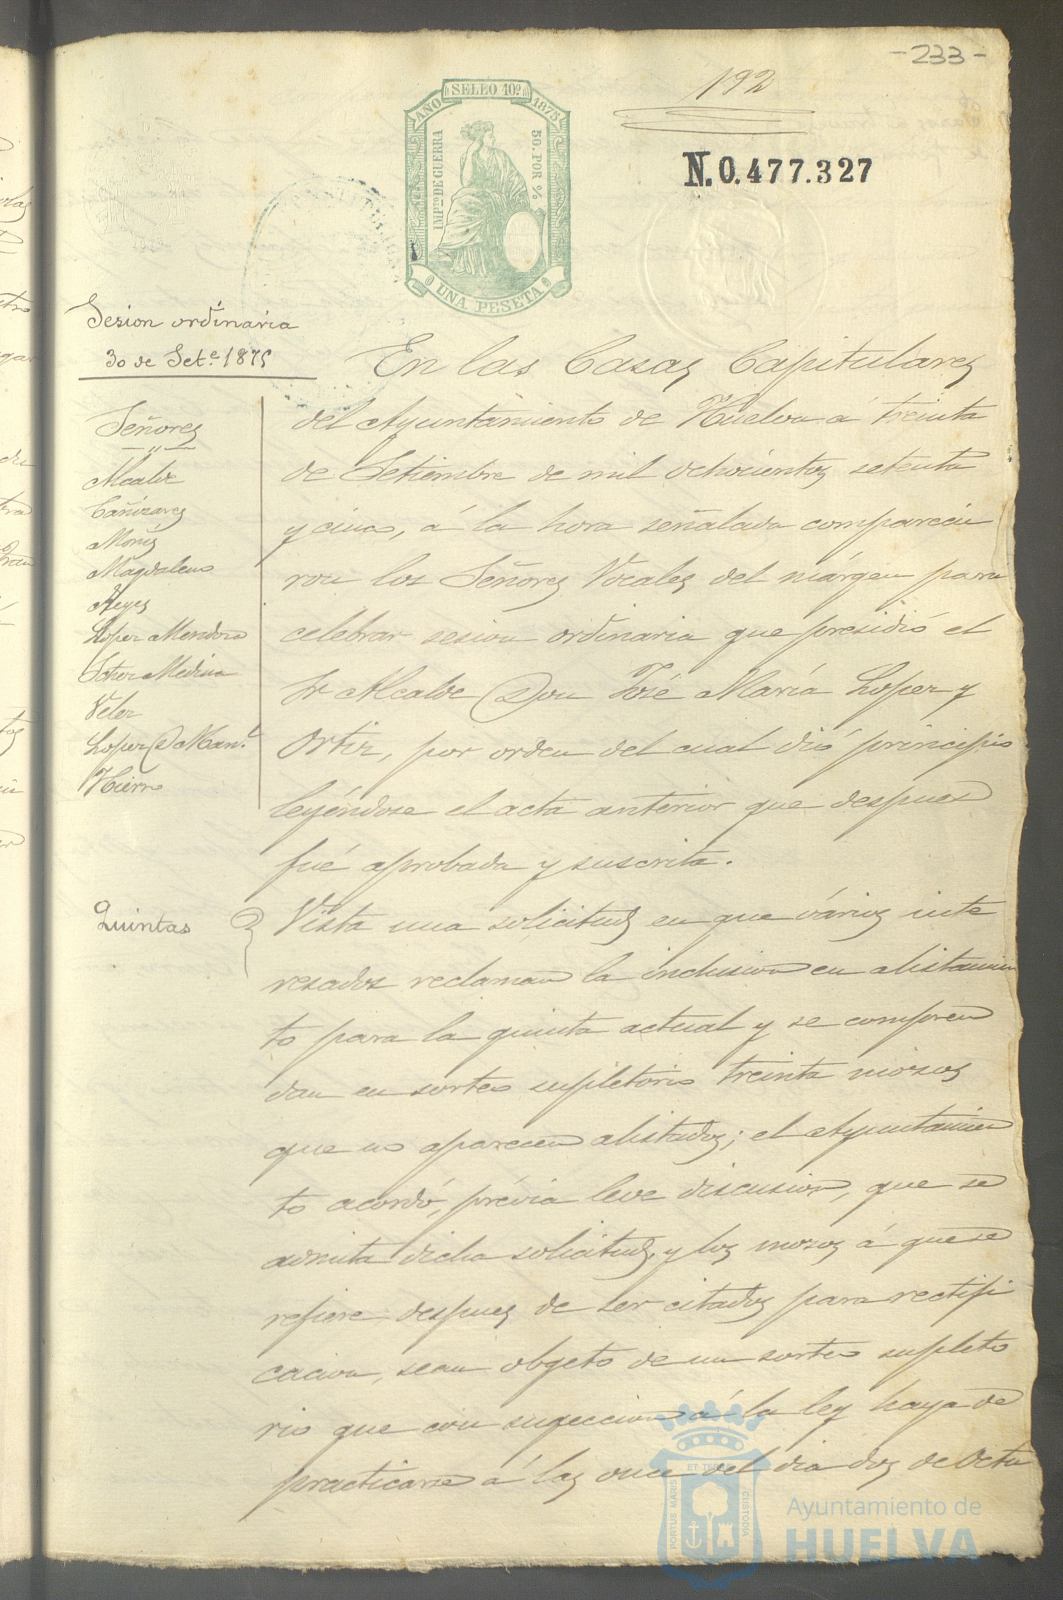 - 233 -
192
AÑO SELLO 10º 1875
IMPTO DE GUERRA
50. POR %
UNA PESETA
N. 0.477.327
Sesion ordinaria
30 de Sete. 1875
Señores
Alcalde
Cañizares
Moñiz
Magdaleno
Reyes
Lopez Mendoza
Soher Medina
Velez
Lopez D. Man.l
Hierro
En las Casas Capitulares
del Ayuntamiento de Huelva á treinta
de Setiembre de mil ochocientos setenta
y cinco, á la hora señalada comparecie
ron los Señores Vocales del márgen para
celebrar sesion ordinaria que presidió el
Sr Alcalde Don José María Lopez y
Ortiz, por orden del cual dió principio
leyéndose el acta anterior que despues
fué aprobada y suscrita.
Quintas
Vista una solicitud en que vários inte
resados reclaman la inclusion en alistamien
to para la quinta actual y se compren
dan en sorteo supletorio treinta mozos
que no aparecen alistados; el Ayuntamien
to acordó, prévia leve discusion, que se
admita dicha solicitud, y los mozos á que se
refiere, despues de ser citados para rectifi
cacion, sean obgeto de un sorteo supleto
rio que con sugeccion á la ley haya de
practicarse á las once del dia dos de Octu
ET TERRAE
PORTUS MARIS
CUSTODIA
Ayuntamiento de
HUELVA